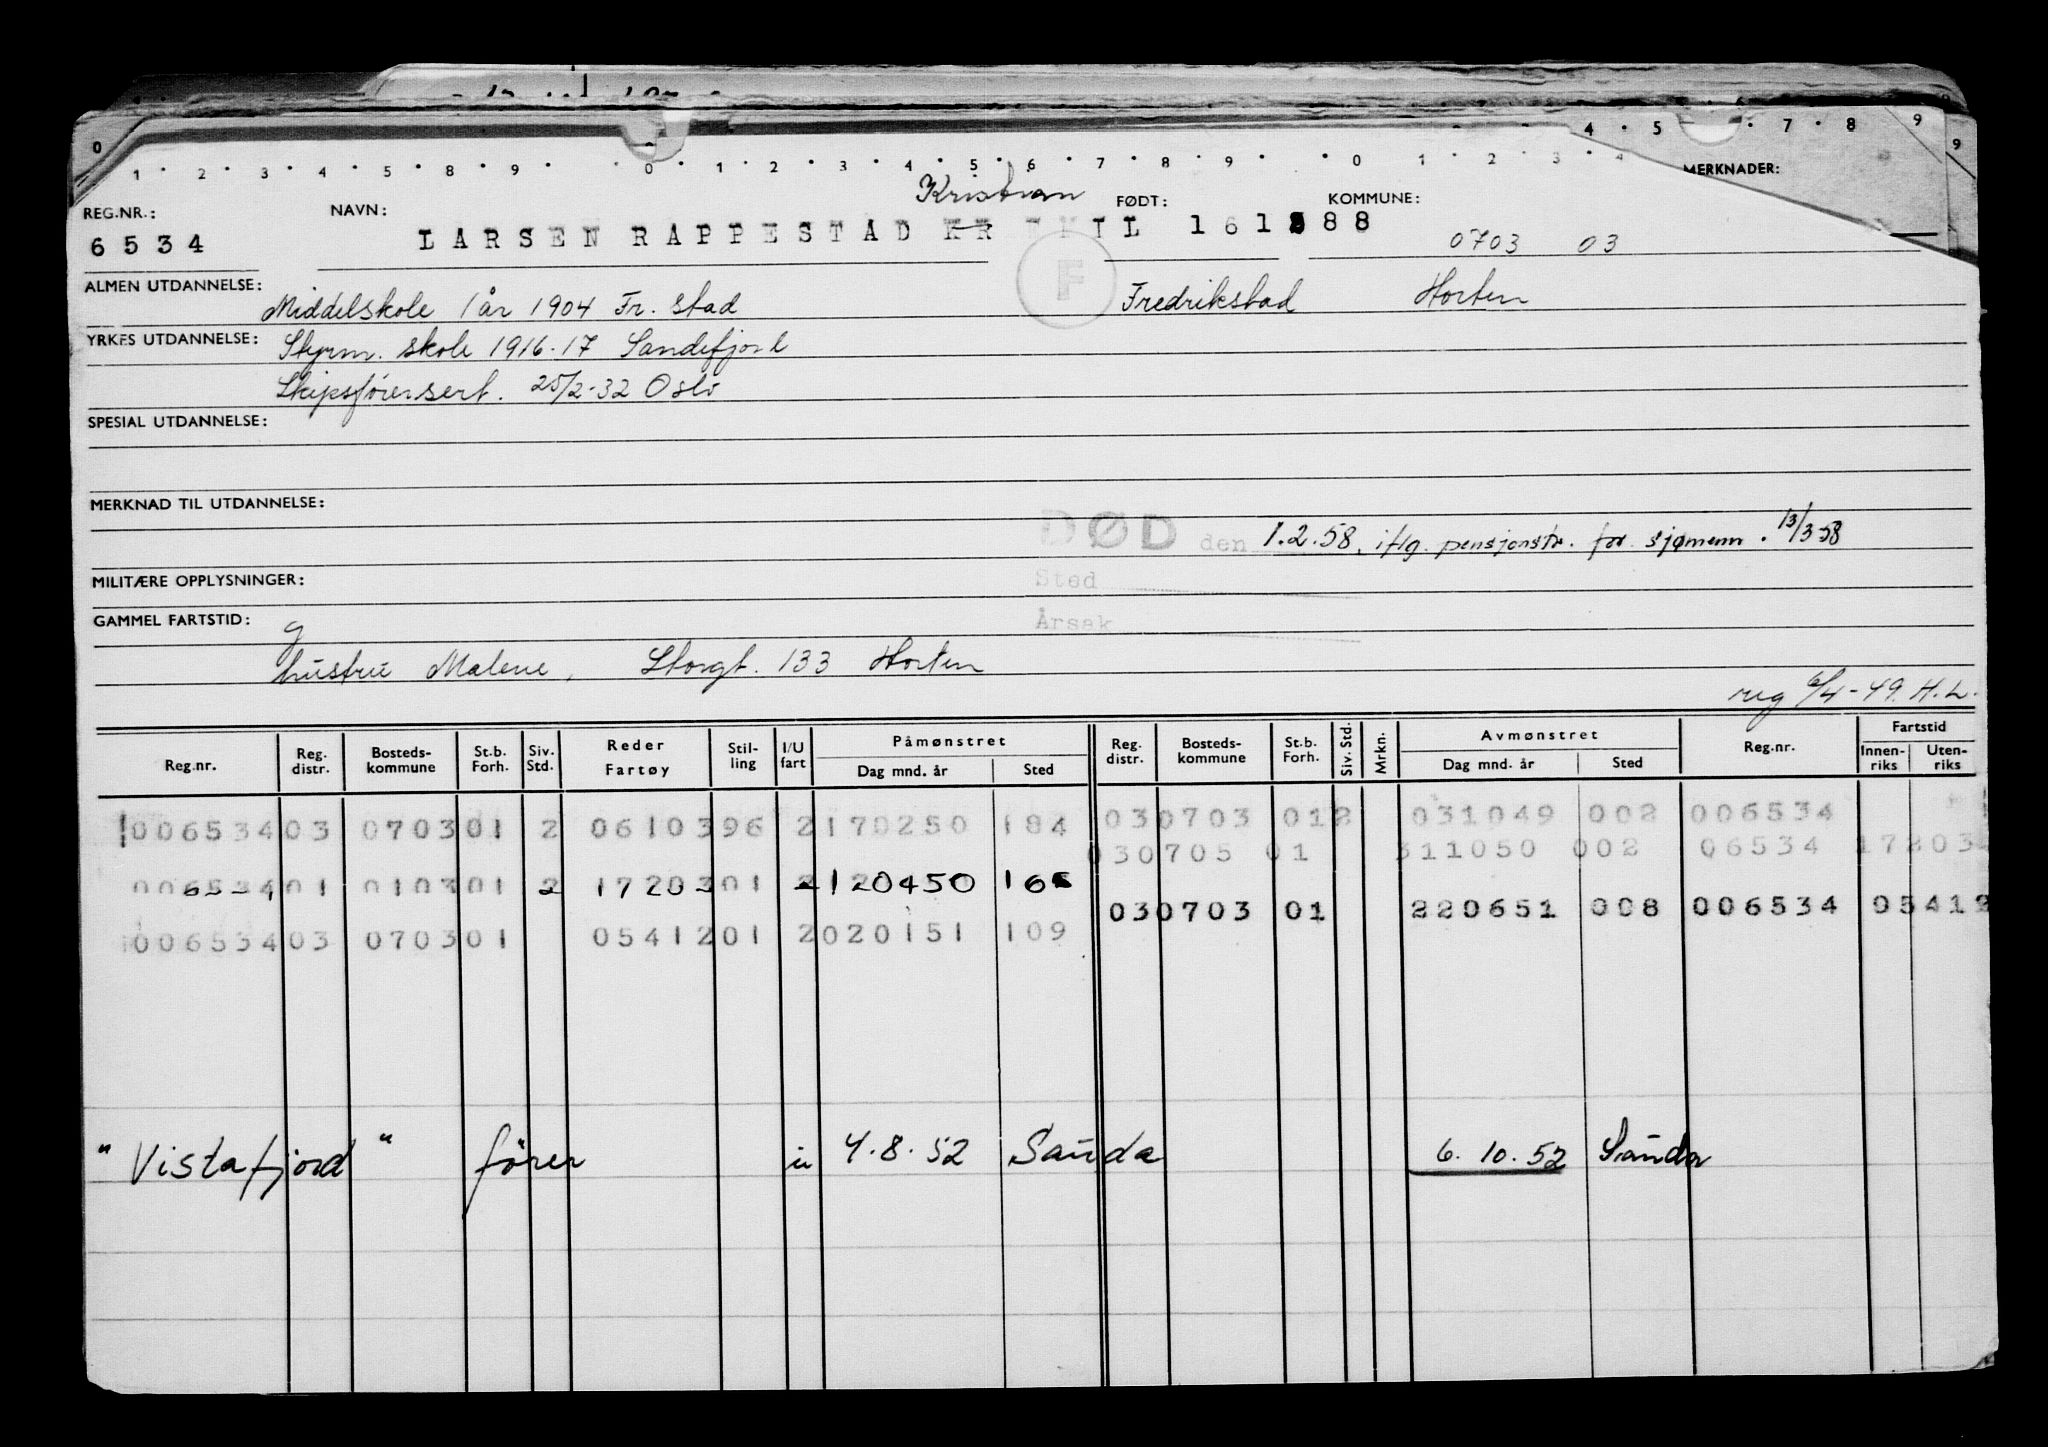 0 1 2 3 4 5 6 7 8 9 0 1 2 3 4 5 6 7 8 9 0 1 2 3 4
4 5 7 8 9
9
MERKNADER:
Kristian
REG.NR.: NAVN: FØDT: KOMMUNE:
6534 LARSEN RAPPESTAD KR EMIL 161288 0703 03
F
ALMEN UTDANNELSE: Middelskole 1 år 1904 Fr. stad Fredrikstad Horten
YRKES UTDANNELSE: Styrm. skole 1916-17 Sandefjord
Skipsførersert. 25/2-32 Oslo
SPESIAL UTDANNELSE:
MERKNAD TIL UTDANNELSE:
DØD den 1.2.58, iflg. pensjonstr. for sjømenn. 13/3 58
MILITÆRE OPPLYSNINGER: Sted
GAMMEL FARTSTID: g Årsak
hustru Malene, Storgt. 133 Horten
reg 6/4-49. H.L.
Reg.nr. Reg. distr. Bosteds-kommune St.b. Forh. Siv. Std. Reder Fartøy Stil-ling I/U fart Påmønstret Dag mnd. år Sted Reg. distr. Bosteds-kommune St.b. Forh. Siv. Std. Mrkn. Avmønstret Dag mnd. år Sted Reg.nr. Fartstid Innen-riks Uten-riks
006534 03 0703 01 2 06103 96 2 170250 184 03 0703 01 2 031049 002 006534
030705 01 311050 002 06534 17203
006534 01 0103 01 2 17203 01 2 120450 16
03 0703 01 220651 008 006534 05412
006534 03 0703 01 05412 01 2 020151 109
"Vistafjord" fører u 4.8.52 Sauda 6.10.52 Sauda